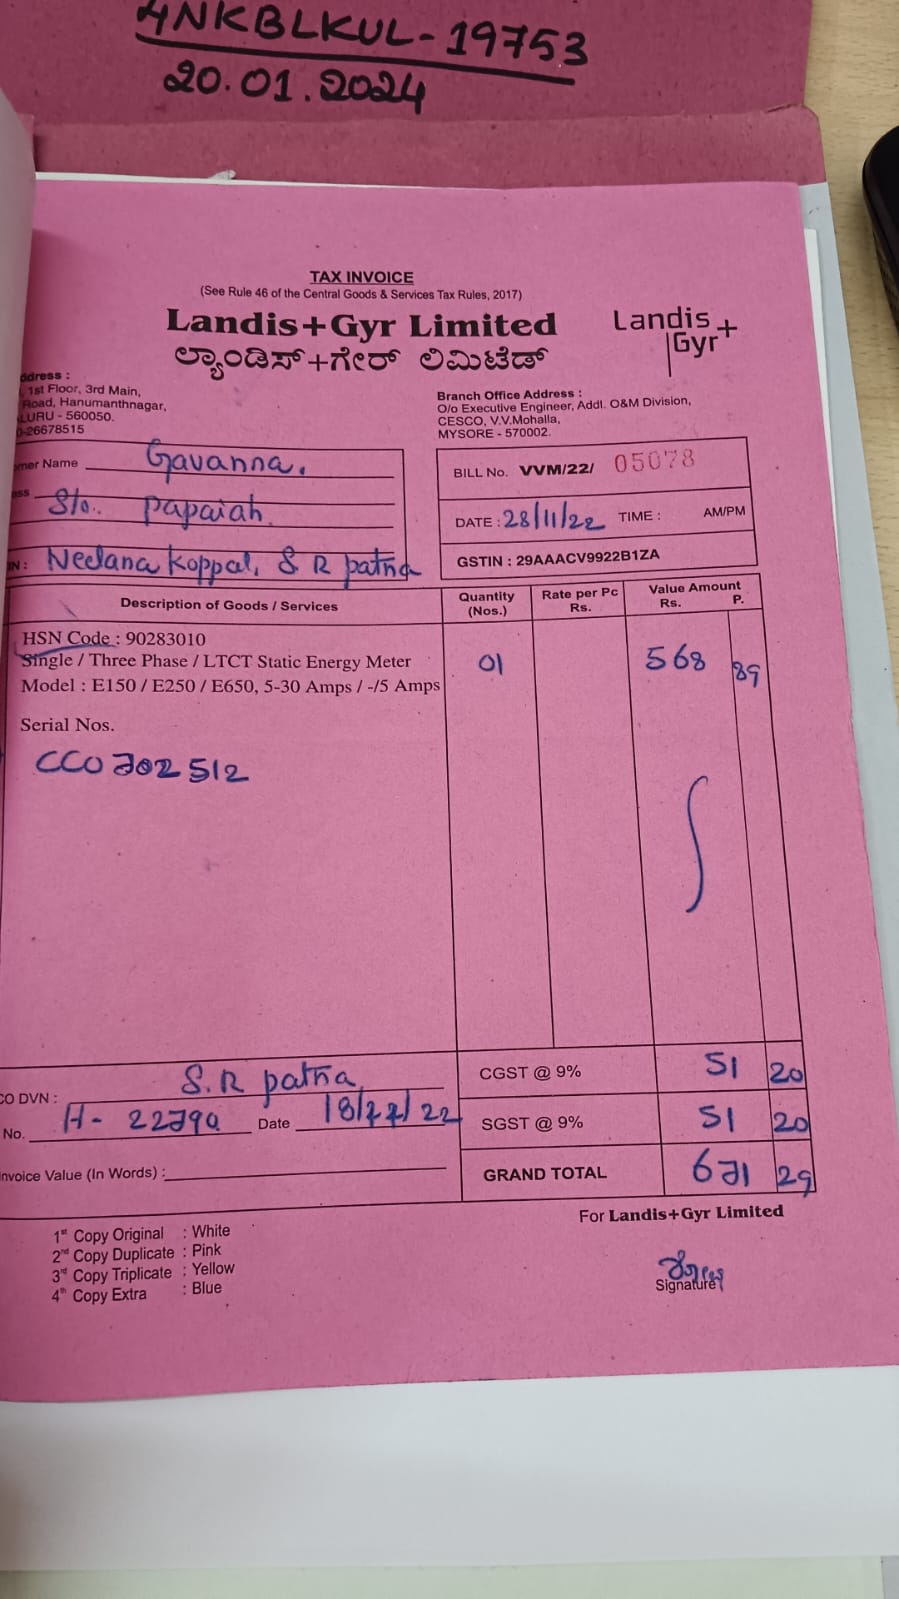 4NKBLKUL-19753
20.01.2024
TAX INVOICE
(See Rule 46 of the Central Goods & Services Tax Rules, 2017)
Landis+Gyr Limited
Landis
Gyr+
ಲ್ಯಾಂಡಿಸ್+ಗೇರ್ ಲಿಮಿಟೆಡ್
ddress :
1st Floor, 3rd Main,
Road, Hanumanthnagar,
LURU - 560050.
-26678515
Branch Office Address :
O/o Executive Engineer, Addl. O&M Division,
CESCO, V.V.Mohalla,
MYSORE - 570002.
mer Name Gavanna.
ess S/o. Papaiah
N : Neelana Koppal, S R patna
BILL No. VVM/22/ 05078
DATE : 28/11/22 TIME : AM/PM
GSTIN : 29AAACV9922B1ZA
Description of Goods / Services Quantity (Nos.) Rate per Pc Rs. Value Amount Rs. P.
HSN Code : 90283010
Single / Three Phase / LTCT Static Energy Meter 01 568 89
Model : E150 / E250 / E650, 5-30 Amps / -/5 Amps
Serial Nos.
CC0702512
CO DVN : S.R patna
No. H- 22790 Date 18/11/22
nvoice Value (In Words) :
CGST @ 9% 51 20
SGST @ 9% 51 20
GRAND TOTAL 671 29
1st Copy Original : White
2nd Copy Duplicate : Pink
3rd Copy Triplicate : Yellow
4th Copy Extra : Blue
For Landis+Gyr Limited
Signature